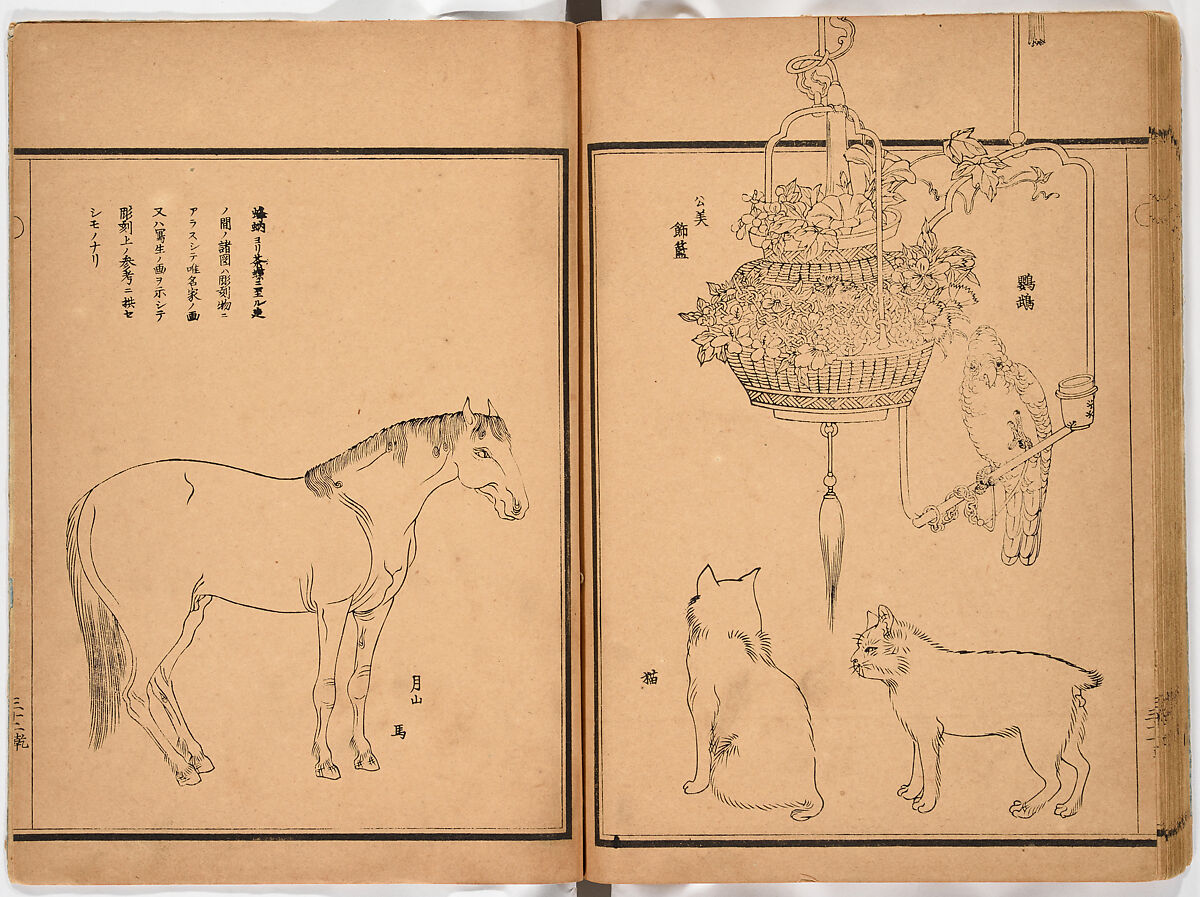 鸚鵡
公美
飾籃
猫
ヨリ
ノ間ノ諸図ハ彫刻物ニ
アラスシテ唯名家ノ画
又ハ写生ノ画ヲ示シテ
彫刻上ノ参考ニ供セ
シモノナリ
月山
馬
三十二乾